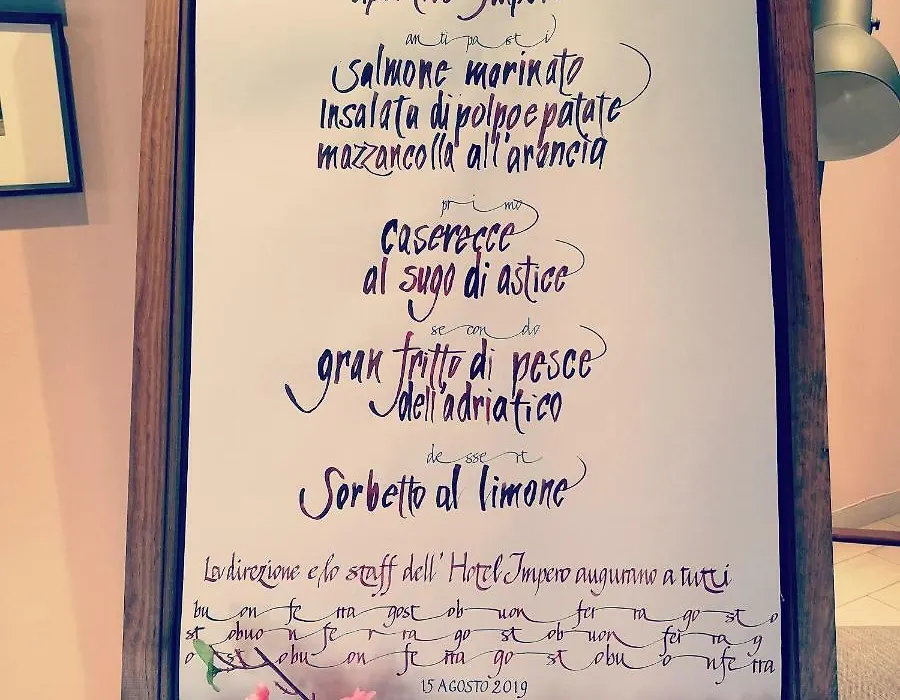 antipasti
salmone marinato
insalata di polpo e patate
mazzancolla all'arancia
primo
caserecce
al sugo di astice
secondo
gran fritto di pesce
dell'adriatico
dessert
Sorbetto al limone
La direzione e lo staff dell' Hotel Impero augurano a tutti
buon ferragosto buon ferragosto
st obuon ferragosto buon ferrag
osto buon ferragosto buon ferra
15 AGOSTO 2019